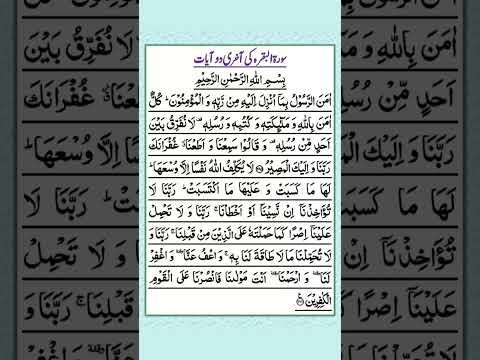 سورۃ البقرہ کی آخری دو آیات
بِسْمِ اللّٰهِ الرَّحْمٰنِ الرَّحِيْمِ
اٰمَنَ الرَّسُوْلُ بِمَاۤ اُنْزِلَ اِلَيْهِ مِنْ رَّبِّهٖ وَ الْمُؤْمِنُوْنَ ؕ كُلٌّ
اٰمَنَ بِاللّٰهِ وَ مَلٰٓىِٕكَتِهٖ وَ كُتُبِهٖ وَ رُسُلِهٖ ۫ لَا نُفَرِّقُ بَيْنَ
اَحَدٍ مِّنْ رُّسُلِهٖ ۫ وَ قَالُوْا سَمِعْنَا وَ اَطَعْنَا ٘ غُفْرَانَكَ
رَبَّنَا وَ اِلَيْكَ الْمَصِيْرُ ۝ لَا يُكَلِّفُ اللّٰهُ نَفْسًا اِلَّا وُسْعَهَا ؕ
لَهَا مَا كَسَبَتْ وَ عَلَيْهَا مَا اكْتَسَبَتْ ؕ رَبَّنَا لَا
تُؤَاخِذْنَاۤ اِنْ نَّسِيْنَاۤ اَوْ اَخْطَاْنَا ۚ رَبَّنَا وَ لَا تَحْمِلْ
عَلَيْنَاۤ اِصْرًا كَمَا حَمَلْتَهٗ عَلَى الَّذِيْنَ مِنْ قَبْلِنَا ۚ رَبَّنَا وَ
لَا تُحَمِّلْنَا مَا لَا طَاقَةَ لَنَا بِهٖ ۚ وَ اعْفُ عَنَّا ۥ وَ اغْفِرْ
لَنَا ۥ وَ ارْحَمْنَا ۥ اَنْتَ مَوْلٰىنَا فَانْصُرْنَا عَلَى الْقَوْمِ
الْكٰفِرِيْنَ ۝